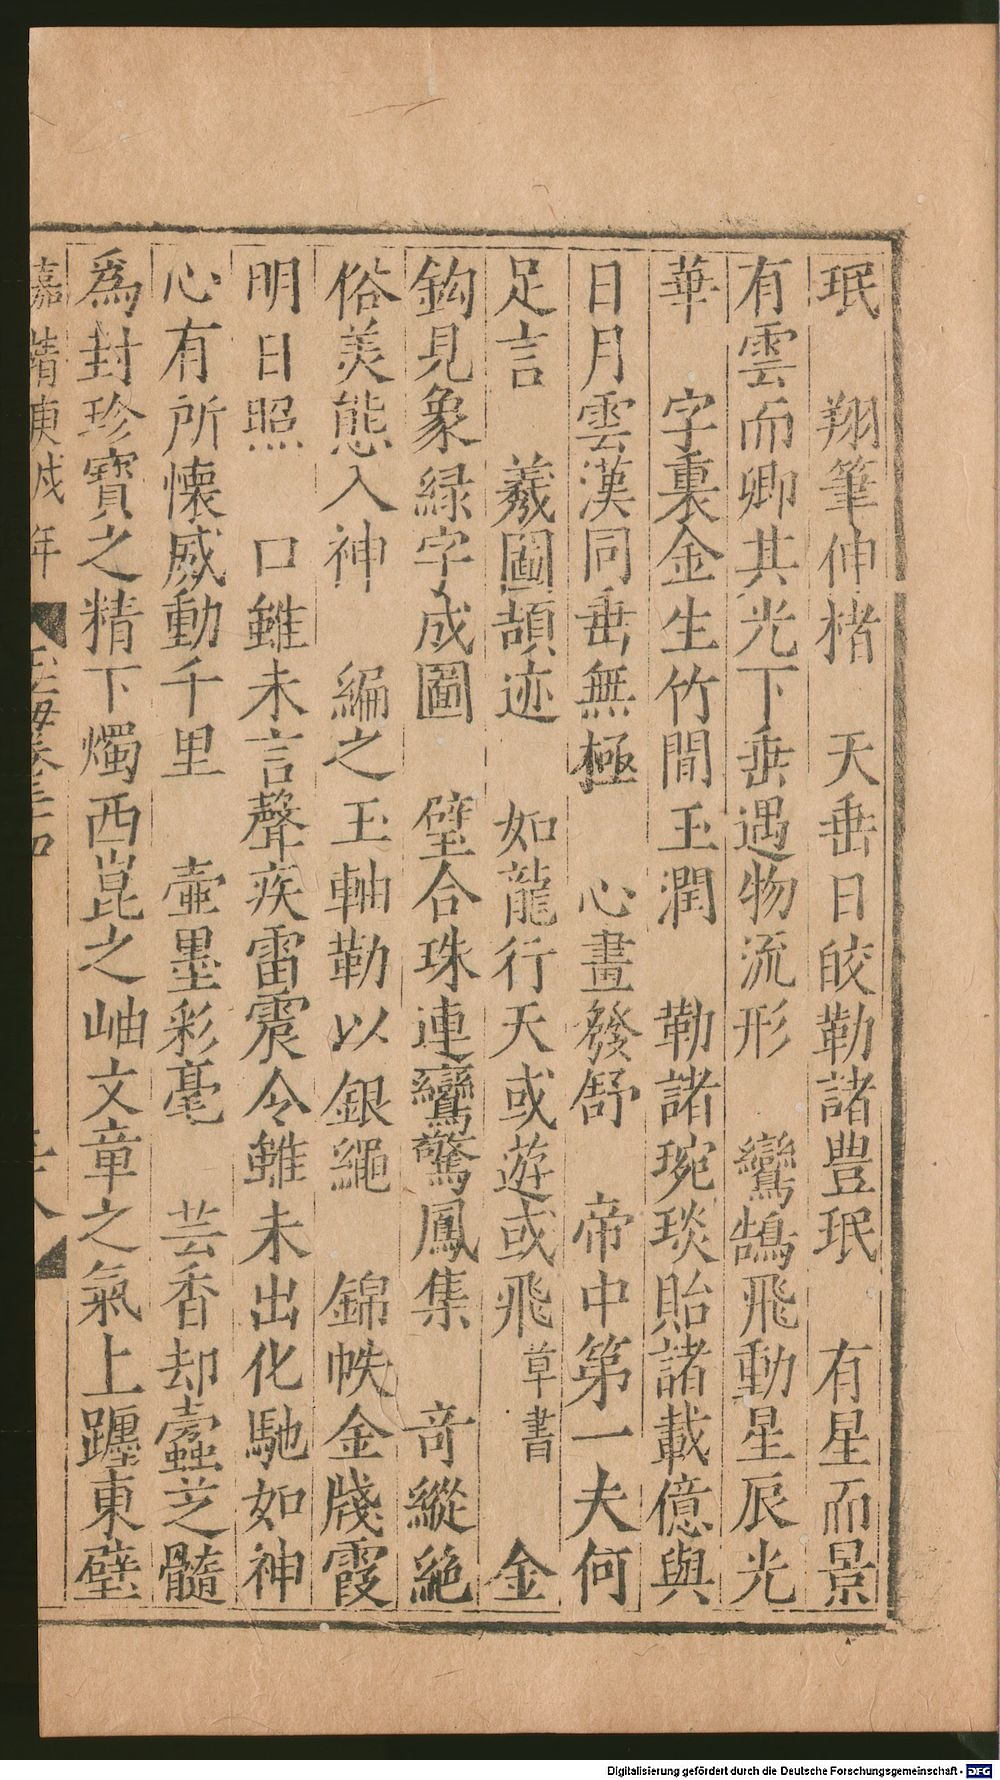 珉　翔筆伸楮　天垂日皎勒諸豊珉　有星而景
有雲而卿其光下垂遇物流形　鸞鵠飛動星辰光
華　字裏金生竹間玉潤　勒諸琬琰貽諸載億與
日月雲漢同垂無極　心畫發舒　帝中第一夫何
足言　羲圖頡迹　如龍行天或遊或飛草書　金
鈎見象緑字成圖　璧合珠連鸞驚鳳集　奇縱絶
俗美態入神　編之玉軸勒以銀繩　錦帙金牋霞
明日照　口雖未言聲疾雷震令雖未出化馳如神
心有所懐威動千里　壷墨彩毫　芸香却蠧芝髓
為封珍寳之精下燭西崑之岫文章之氣上躔東壁
嘉靖庚戌年　玉海卷三十四
Digitalisierung gefördert durch die Deutsche Forschungsgemeinschaft - DFG